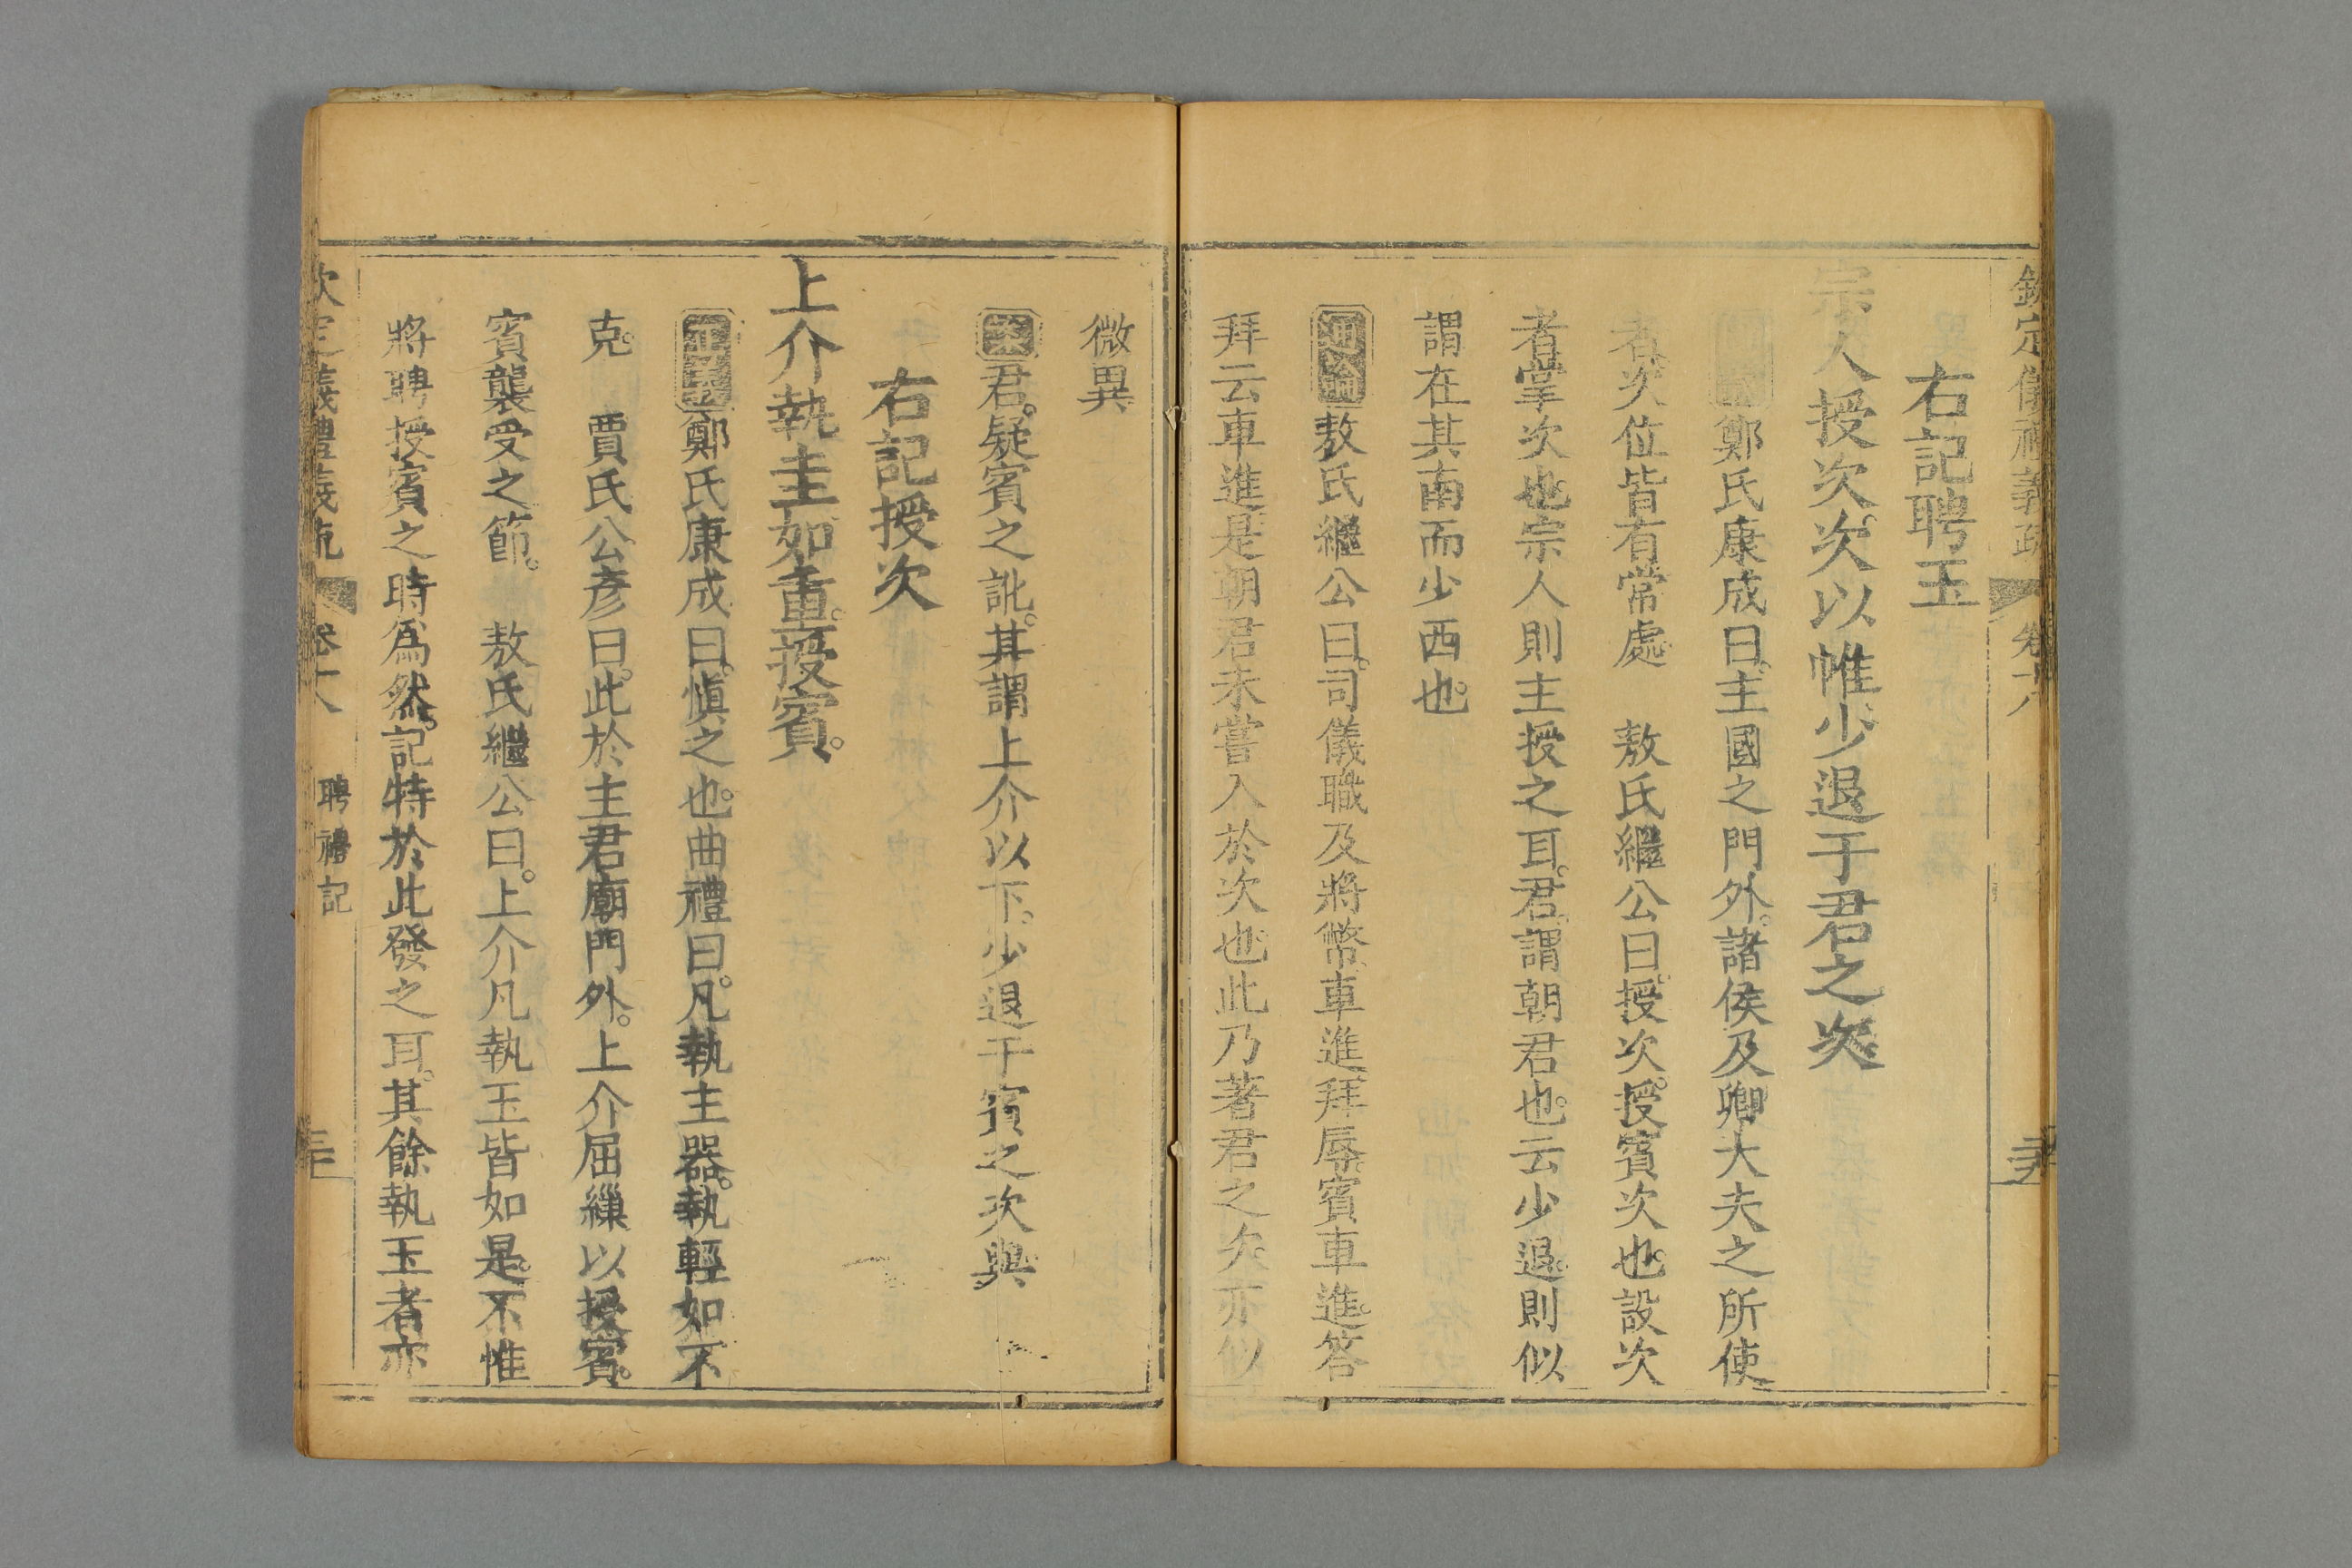 欽定儀禮義疏 卷十八
右記聘玉
宗人授次。次以帷少退于君之次
鄭氏康成曰。主國之門外。諸侯及卿大夫之所使
者。次位皆有常處。 敖氏繼公曰。授次。授賓次也。設次
者掌次也。宗人則主授之耳。君。謂朝君也。云少退。則似
謂在其南而少西也。
通論敖氏繼公曰。司儀職及將幣車進拜辱賓車進。答
拜云車進是朝君未嘗入於次也。此乃著君之次。亦似
微異
案君。疑賓之訛。其謂上介以下。少退于賓之次與
右記授次
上介執圭如重。授賓。
正義鄭氏康成曰。愼之也。曲禮曰。凡執主器。執輕如不
克。 賈氏公彥曰。此於主君廟門外。上介屈繅以授賓。
賓襲受之節。 敖氏繼公曰。上介凡執玉皆如是。不惟
將聘授賓之時爲然。記特於此發之耳。其餘執玉者亦
欽定儀禮義疏 卷十八 聘禮記